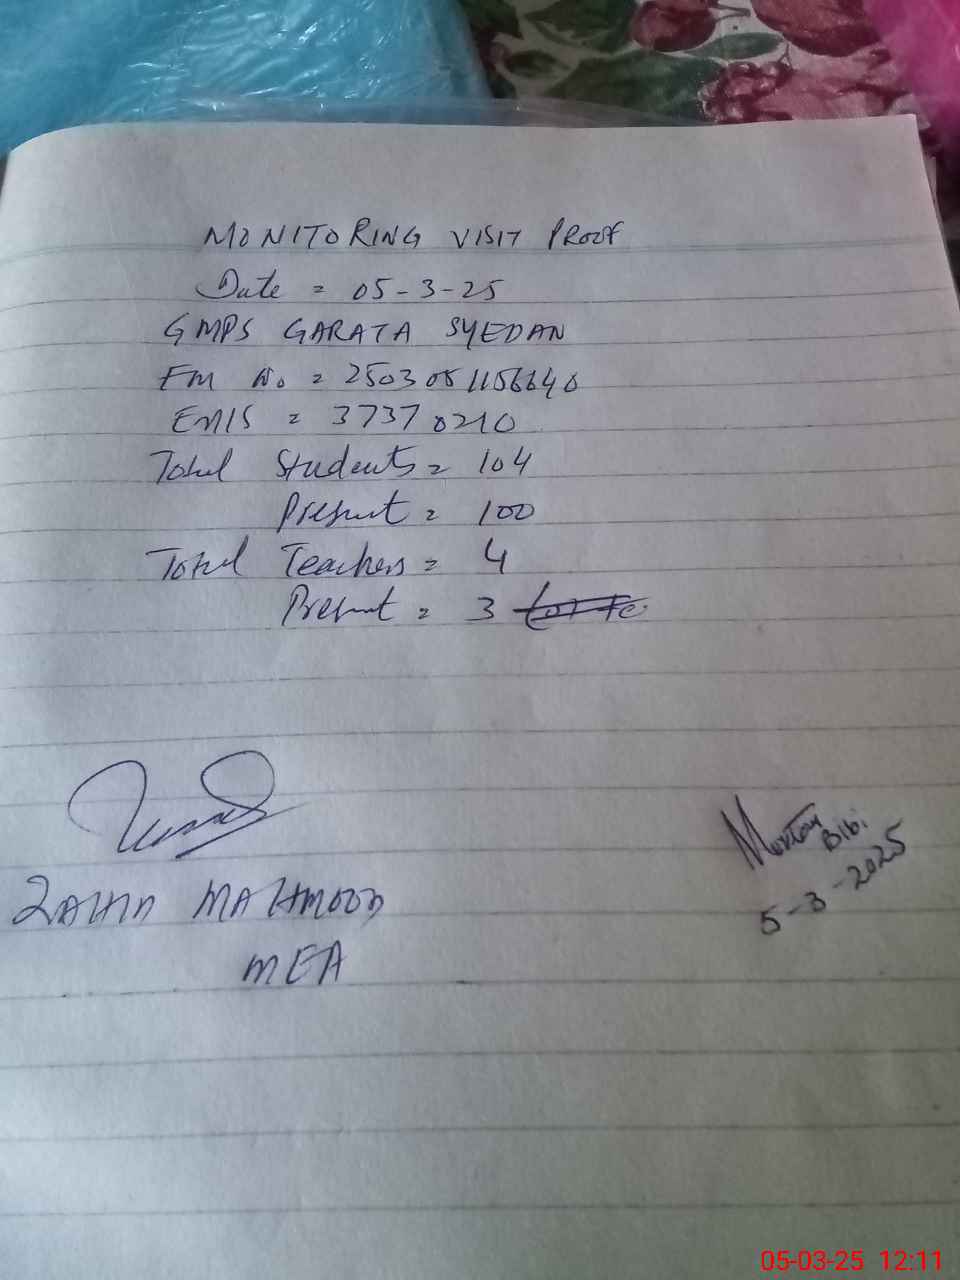 MONITORING VISIT PROOF
Date = 05-3-25
GMPS GARATA SYEDAN
FM No = 2503051156640
EMIS = 37370210
Total Students = 104
Present = 100
Total Teachers = 4
Present = 3
MAHMOOD
MEA
Bibi
5-3-2025
05-03-25 12:11